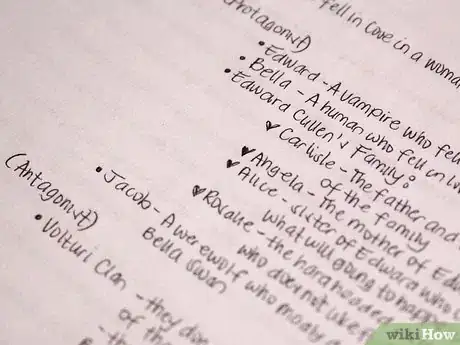 fell in love in a woma
(Protagonist)
• Edward - A vampire who fell
• Bella - A human who fell in
• Edward Cullen's Family:
Carlisle - The father and
of the family
Angela - The mother of Ed
Alice - sister of Edward who
what will going to happ
Rosalie - the hard hooded
who doesnot like
• Jacob - A werewolf who madly
Bella Swan
(Antagonist)
• Volturi Clan - they
of the
wikiHow